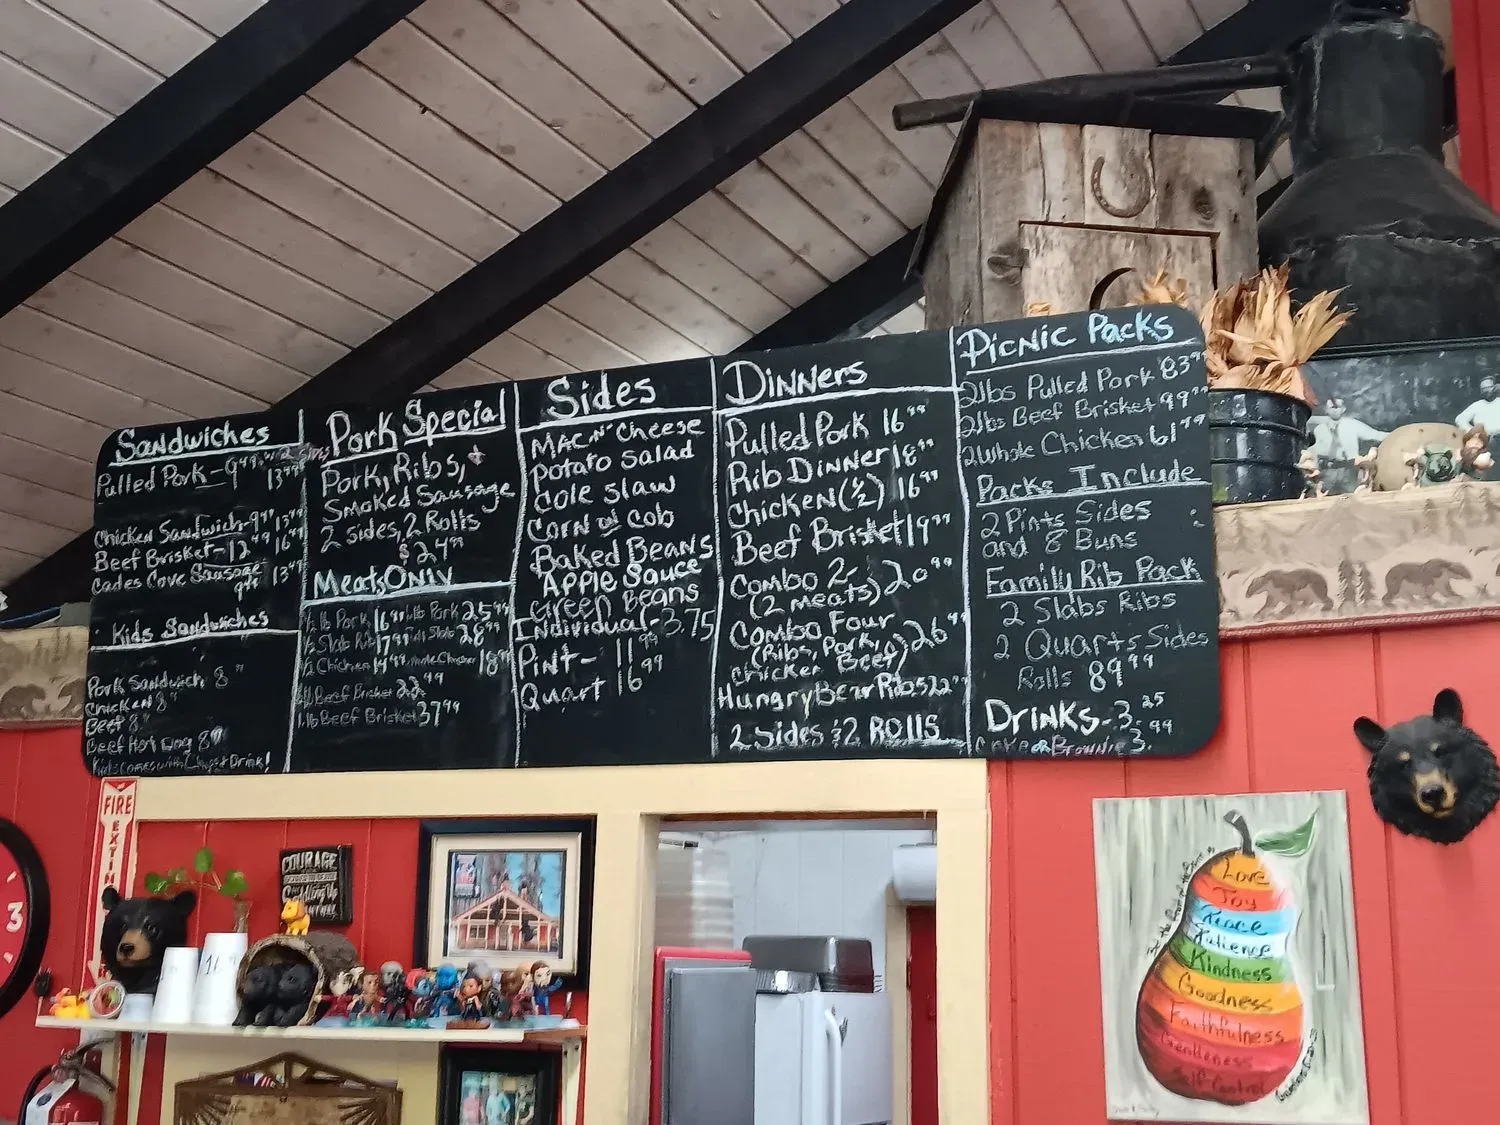 Sandwiches
Pulled Pork - 9.99 w/ 2 sides 13.99
Chicken Sandwich - 9.99 13.99
Beef Brisket - 12.99 16.99
Cades Cove Sausage
9.99 13.99
Kids Sandwiches
Pork Sandwich 8.99
Chicken 8.99
Beef 8.99
Beef Hot Dog 8.99
Kids comes with Chips & Drink!
Pork Special
Pork, Ribs, +
Smoked Sausage
2 sides, 2 Rolls
$24.99
Meats Only
½ lb Pork 16.99 1 lb Pork 25.99
½ Slab Rib 17.99 Full Slab 28.99
½ Chicken 14.99 whole Chicken 18.99
½ lb Beef Brisket 22.99
1 lb Beef Brisket 37.99
Sides
Mac N' Cheese
Potato Salad
Cole Slaw
Corn on Cob
Baked Beans
Apple Sauce
Green Beans
Individual - 3.75
Pint - 11.99
Quart 16.99
Dinners
Pulled Pork 16.99
Rib Dinner 18.99
Chicken (½) 16.99
Beef Brisket 19.99
Combo 2 - 20.99
(2 meats)
Combo Four
(Ribs, Pork, 26.99
Chicken Beef)
Hungry Bear Ribs 32.99
2 Sides & 2 Rolls
Picnic Packs
2lbs Pulled Pork 83.99
2lbs Beef Brisket 99.99
2 Whole Chicken 61.99
Packs Include
2 Pints Sides
and 8 Buns
Family Rib Pack
2 Slabs Ribs
2 Quarts Sides
Rolls 89.99
Drinks - 3.25
Cake or Brownie 3.99
FIRE
EXTIN
COURAGE
Saddling Up
Anyway.
3
Love
Joy
Peace
Patience
Kindness
Goodness
Faithfulness
Gentleness
Self Control